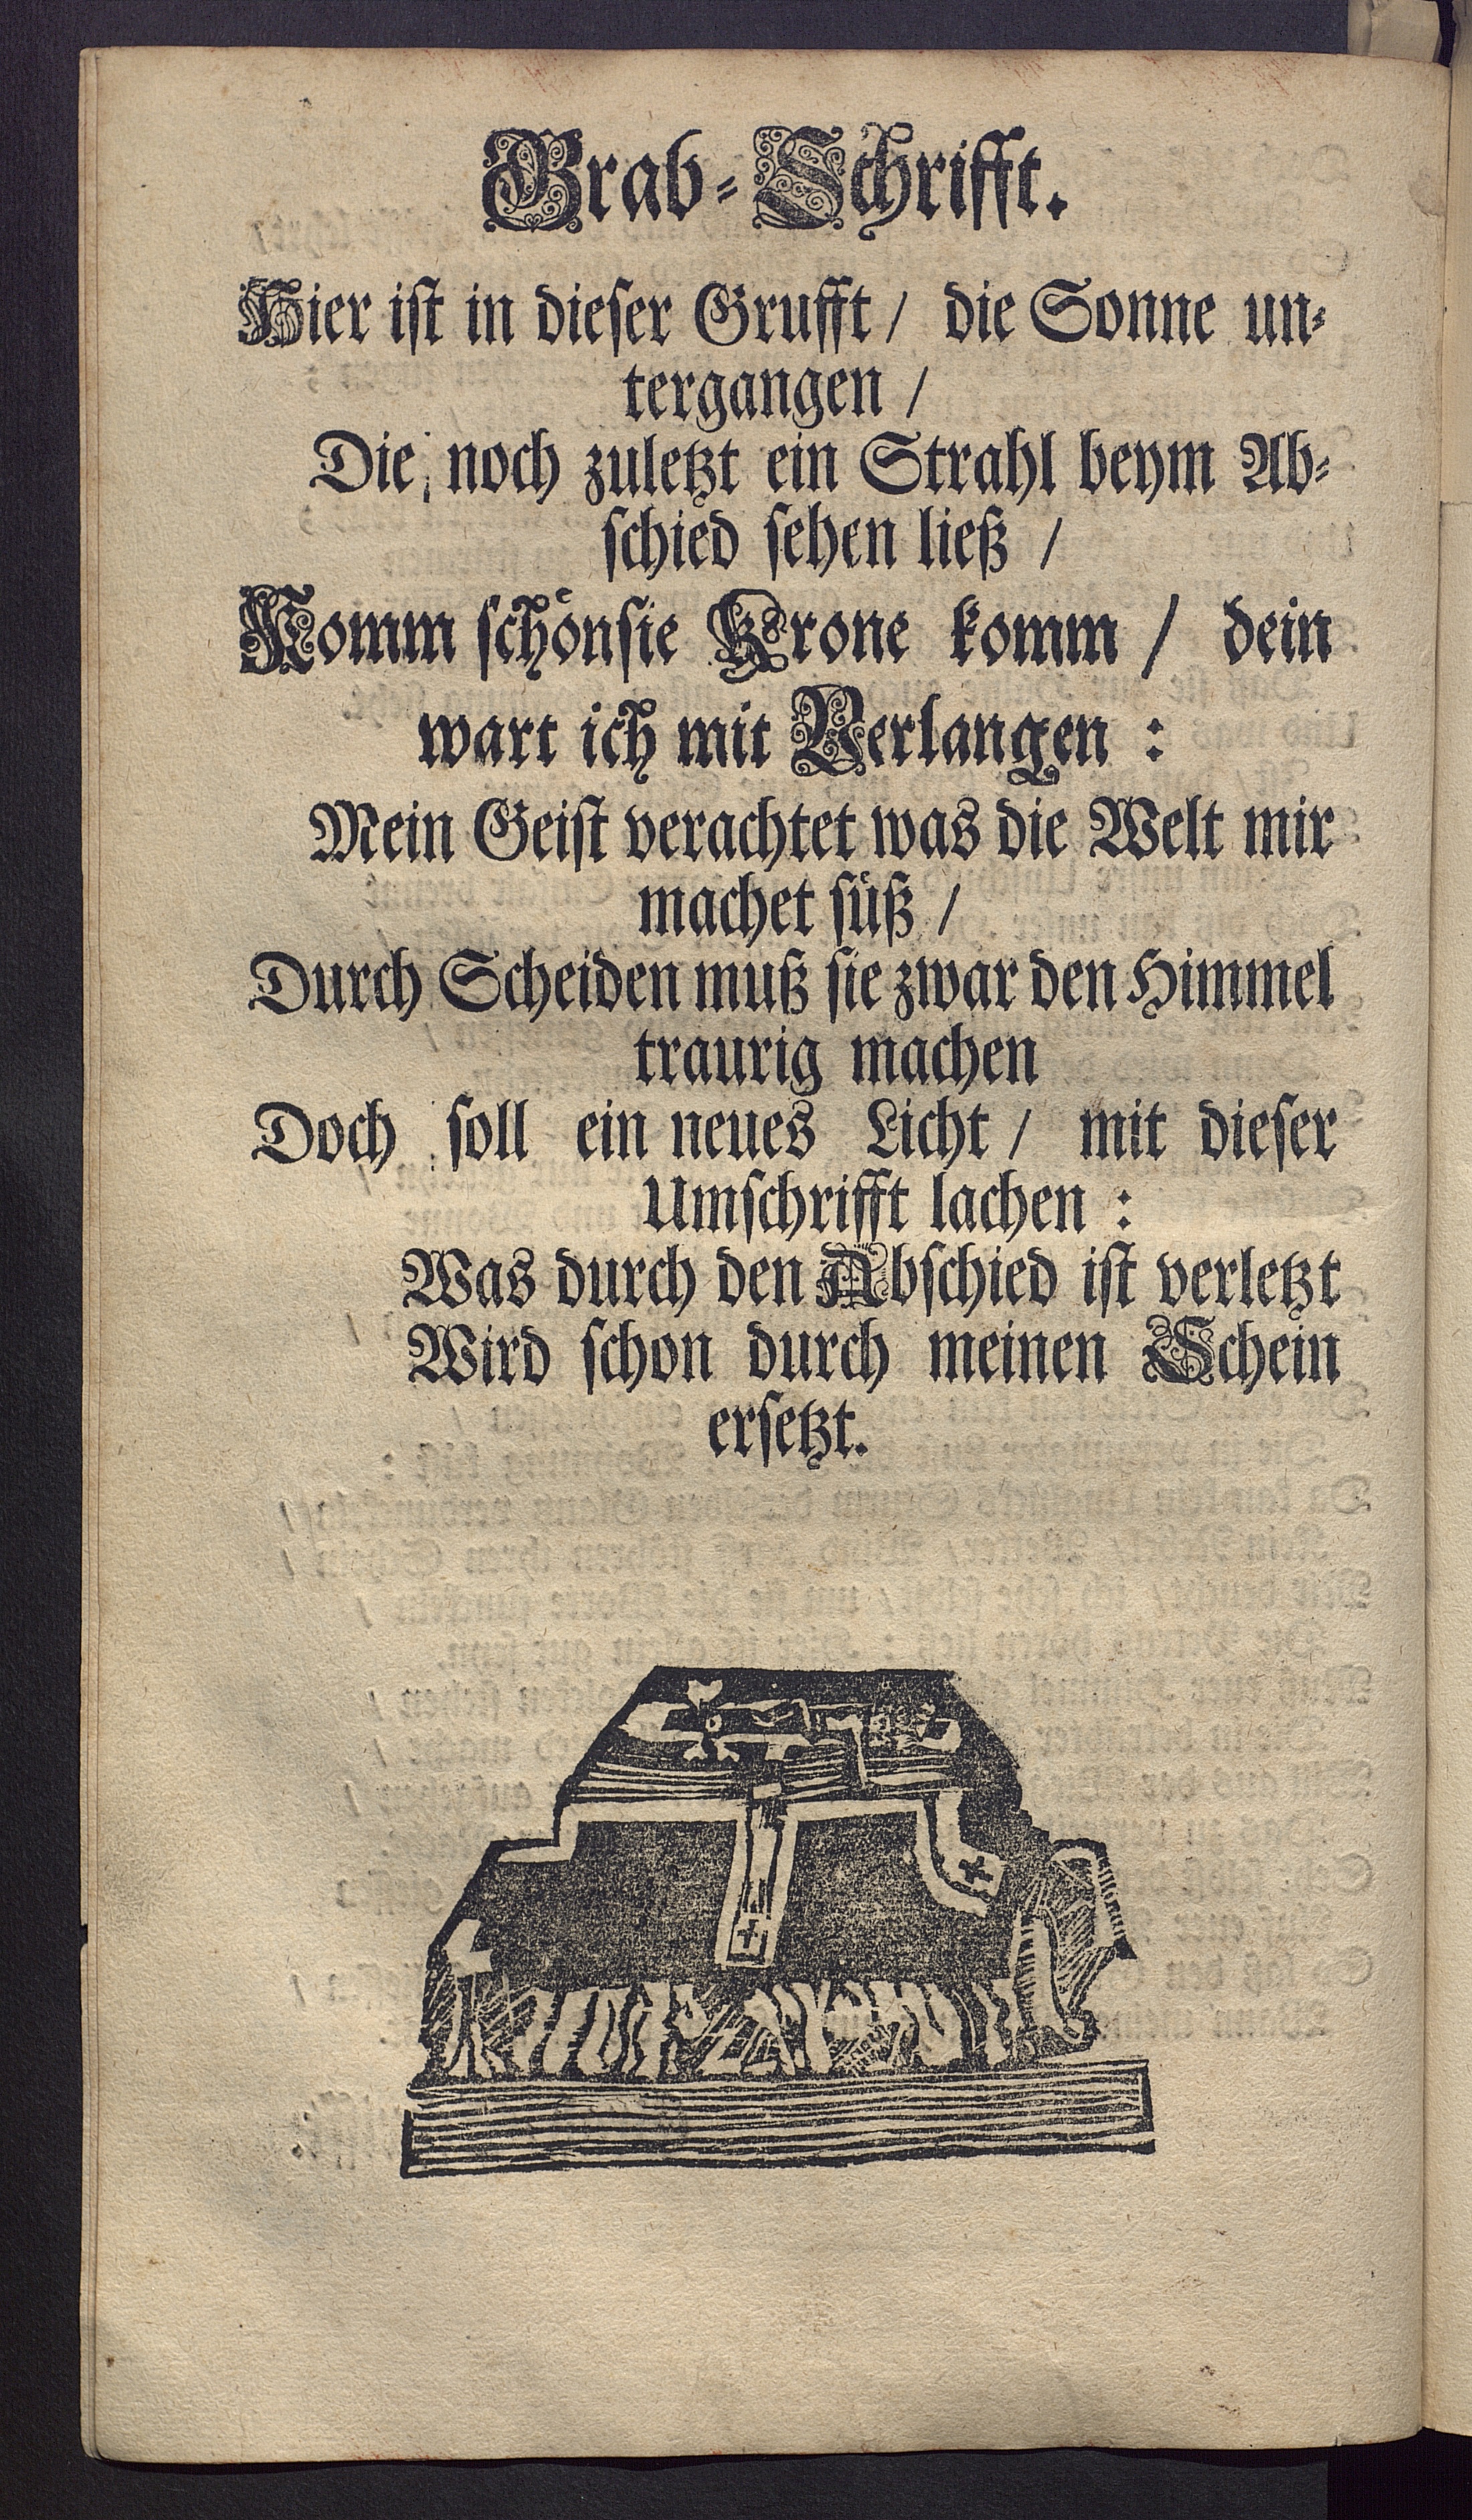 Grab-Schrifft.
Hier ist in dieser Grufft / die Sonne un-
tergangen /
Die noch zuletzt ein Strahl beym Ab-
schied sehen ließ /
Komm schönste Krone komm / dein
wart ich mit Verlangen :
Mein Geist verachtet was die Welt mir
machet süß /
Durch Scheiden muß sie zwar den Himmel
traurig machen
Doch soll ein neues Licht / mit dieser
Umschrifft lachen :
Was durch den Abschied ist verletzt
Wird schon durch meinen Schein
ersetzt.